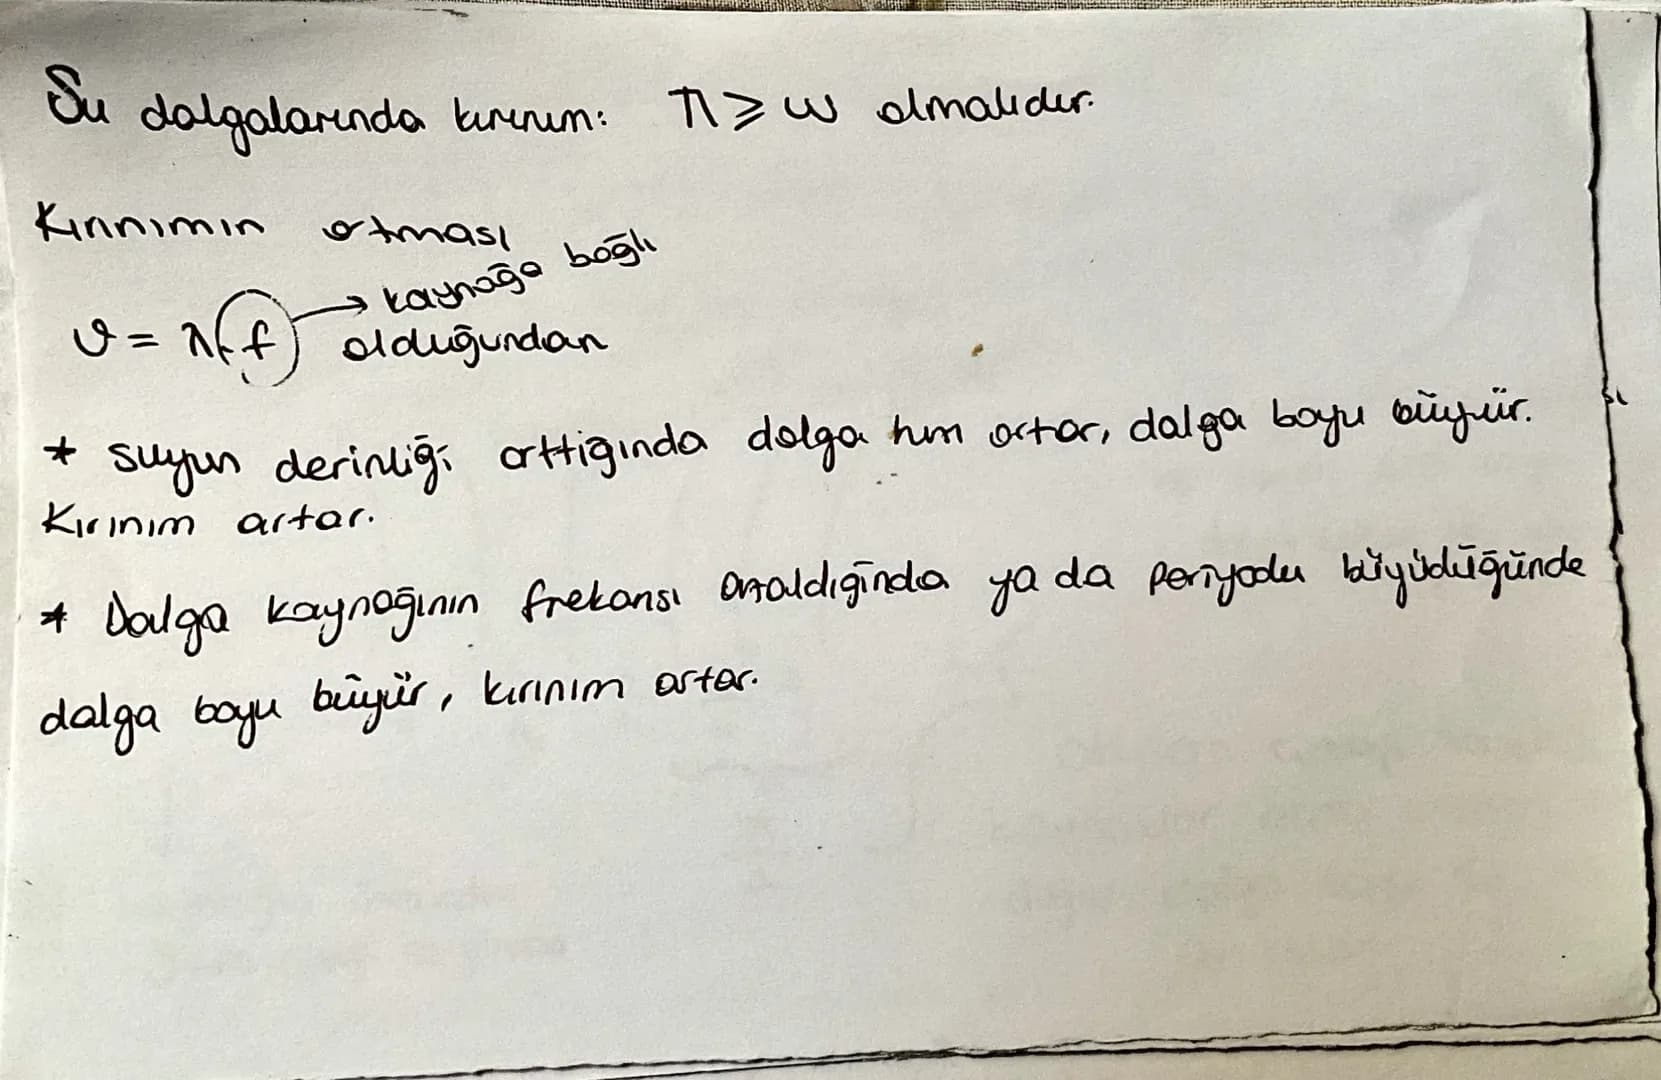 Su dalgalarında kırınım: λ ≥ w olmalıdır.
Kırınımın artması
v = λ.f → kaynağa bağlı
olduğundan
* suyun derinliği arttığında dalga hızı artar, dalga boyu büyür.
Kırınım artar.
* Dalga kaynağının frekansı azaldığında ya da periyodu büyüdüğünde
dalga boyu büyür, kırınım artar.